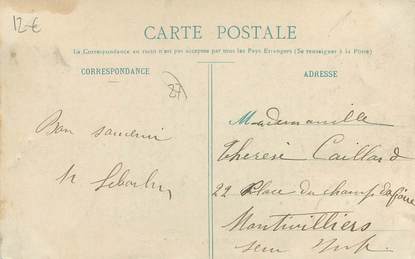 12 €
CARTE POSTALE
La Correspondance au recto n'est pas acceptée par tous les Pays Etrangers (Se renseigner à la Poste)
CORRESPONDANCE
ADRESSE
27
Bon souvenir
Mademoiselle
Therese Caillard
22 Place du champ de foire
Montivilliers
Seine Inf